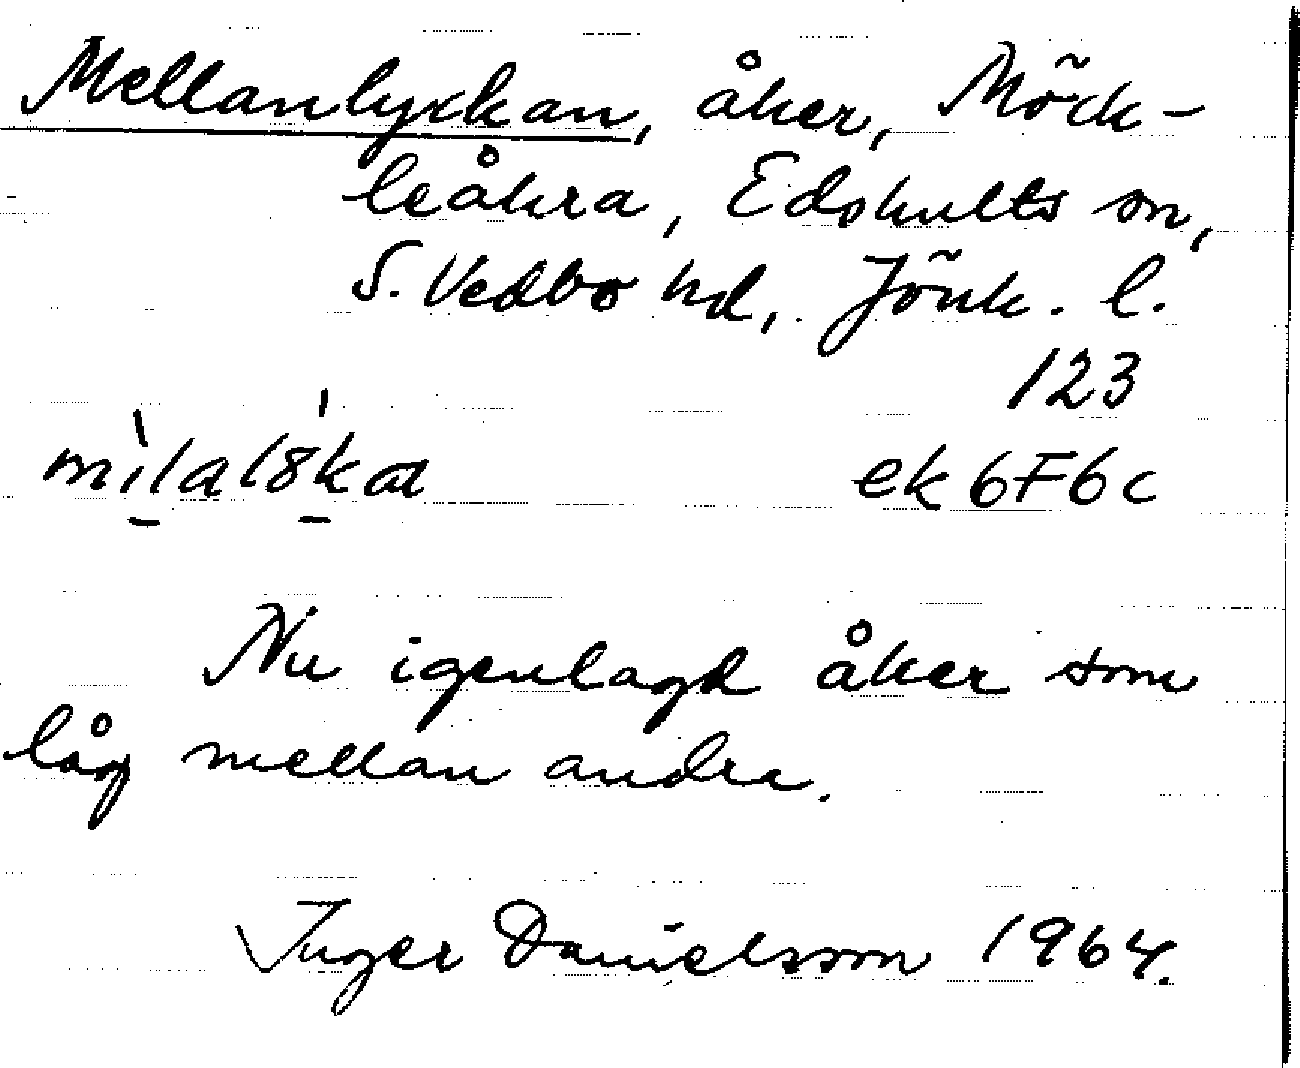 Mellanlyckan, åker, Möck-
leåkra, Edshults sn,
S. Vedbo hd, Jönk. l.
123
ek 6F6c
Nu igenlagd åker som
låg mellan andra.
Inger Danielsson 1964.